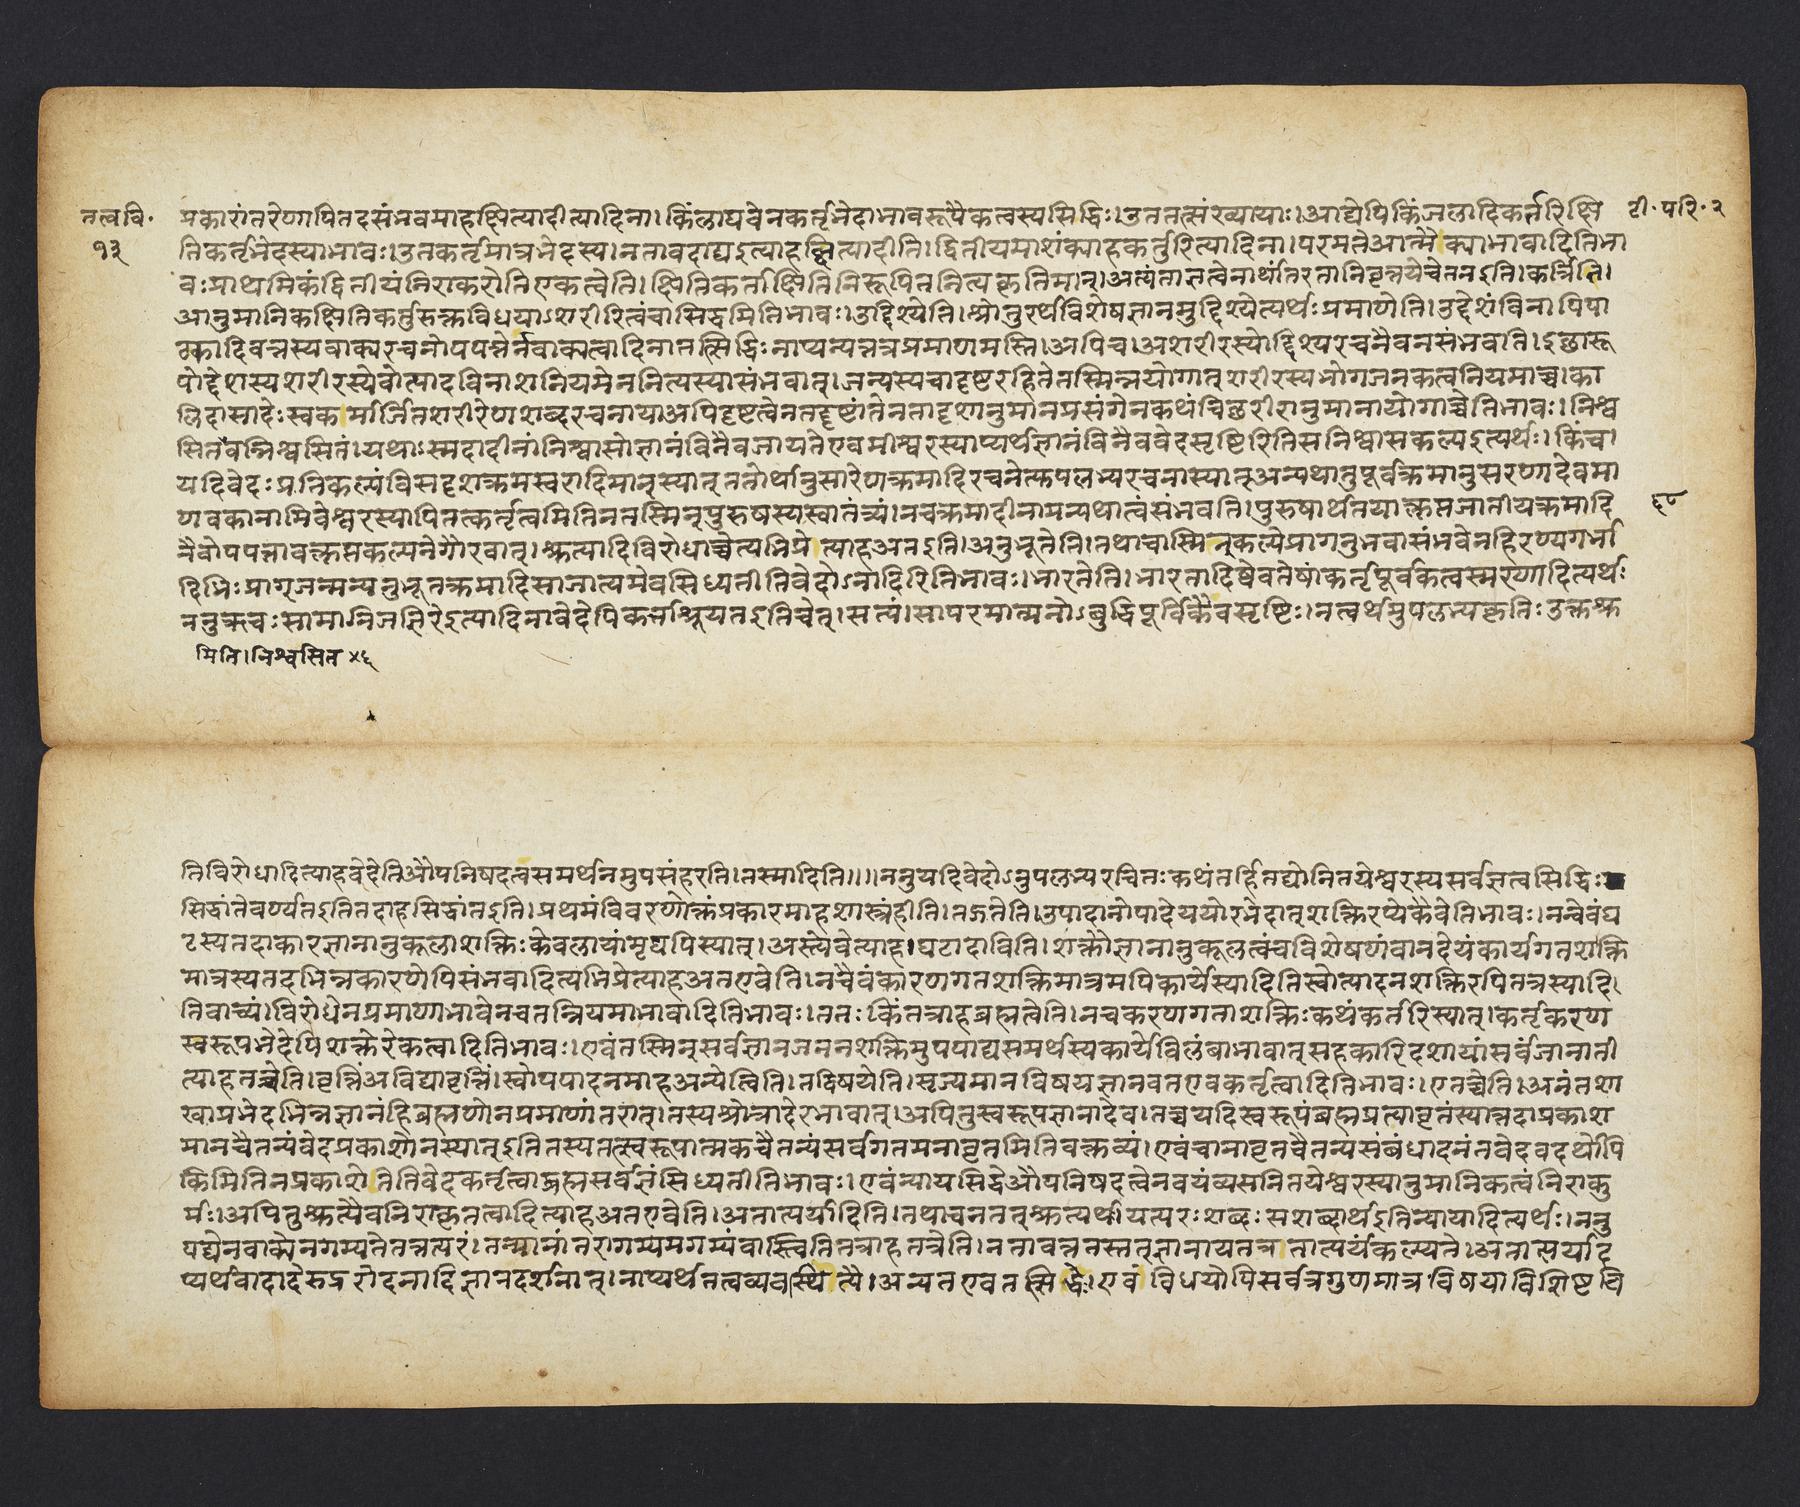 तत्ववि॰
१३
टी॰ परि॰ २
प्रकारांतरेणापितदसंभवमाहक्षित्यादीत्यादिना। किंलाघवेनकर्तृभेदाभावरूपैकत्वस्यसिद्धिः। उततत्संख्यायाः। आद्येपिकिंजलादिकर्तरिक्षि
तिकर्तृभेदस्याभावः। उतकर्तृमात्रभेदस्य। नतावदाद्यइत्याहक्षित्यादीति। द्वितीयमाशंक्याहकर्तुरित्यादिना। परमतेआत्मैक्याभावादितिभा
वः। प्राथमिकंद्वितीयंनिराकरोतिएकत्वेति। क्षितिकर्ताक्षितिनिरूपितनित्यकृतिमान्। अत्यंतासत्वेनार्थांतरतानिवृत्तयेचेतनइति। कर्त्रिति।
आनुमानिकक्षितिकर्तुरुक्तविधयाऽशरीरित्वंचासिद्धमितिभावः। उद्दिश्येति। श्रोतुरर्थविशेषज्ञानमुद्दिश्येत्यर्थः। प्रमाणेति। उद्देशंविनापिपा
ठकादिवत्तस्यवाक्यरचनोपपत्तेर्नवाक्यत्वादिनातत्सिद्धिः। नाप्यन्यत्तत्रप्रमाणमस्ति। अपिच। अशरीरस्योद्दिश्यरचनैवनसंभवति। इच्छारू
पोद्देशस्यशरीरस्येवोत्पादविनाशनियमेननित्यस्यासंभवात्। जन्यस्यचादृष्टरहितेतस्मिन्नयोगात् शरीरस्यभोगजनकत्वनियमाच्च। का
लिदासादेः स्वकर्मार्जितशरीरेणशब्दरचनायाअपिदृष्टत्वेनतद्दृष्टांतेनतादृशानुमानप्रसंगेनकथंचिच्छरीरानुमानायोगाच्चेतिभावः। निश्व
सितवन्निश्वसितं। यथाऽस्मदादीनांनिश्वासोज्ञानंविनैवजायतेएवमीश्वरस्याप्यर्थज्ञानंविनैववेदसृष्टिरितिसनिश्वासकल्पइत्यर्थः। किंच।
यदिवेदः प्रतिकल्पंविसदृशक्रमस्वरादिमान्स्यात् ततोर्थानुसारेणक्रमादिरचनेत्फपलभ्यरचनास्यात् अन्यथातुपूर्वक्रमानुसरणादेवमा
णवकानामिवेश्वरस्यापितत्कर्तृत्वमितिनतस्मिन्पुरुषस्यस्वातंत्र्यं। नचक्रमादीनामन्यथात्वंसंभवति। पुरुषार्थतयाक्लृप्तजातीयक्रमादि
नैवोपपत्तावक्लृप्तकल्पनेगौरवात्। श्रुत्यादिविरोधाच्चेत्यभिप्रेत्याहअतइति। अनुभूतेति। तथाचास्मिन्कल्पेप्रागनुभवासंभवेनहिरण्यगर्भा
दिभिः प्राग्जन्मन्यनुभूतक्रमादिसाजात्यमेवसिध्यतीतिवेदोऽनादिरितिभावः। भारतेति। भारतादिष्वेवतेषांकर्तृपूर्वकत्वस्मरणादित्यर्थः
ननुऋचः सामानिजज्ञिरेइत्यादिनावेदेपिकर्ताश्रूयतइतिचेत्। सत्यं। सापरमात्मनोऽबुद्धिपूर्विकैवसृष्टिः। नत्वर्थमुपलभ्यकृतिः उक्तश्रु
मिति। निश्वसित ५६
तिविरोधादित्याहवेदेतिऔपनिषदत्वसमर्थनमुपसंहरति। तस्मादिति॥॥ ननुयदिवेदोऽनुपलभ्यरचितः कथंतर्हितद्योनितयेश्वरस्यसर्वज्ञत्वसिद्धिः
सिद्धांतेवर्ण्यतइतितदाहसिद्धांतइति। प्रथमंविवरणोक्तंप्रकारमाहशास्त्रंहीति। तज्ञतेति। उपादानोपादेययोरभेदात् शक्तिरप्येकैवेतिभावः। नन्वेवंघ
टस्यतदाकारज्ञानानुकूलाशक्तिः केवलायांमृद्यपिस्यात्। अस्त्येवेत्याह। घटादाविति। शक्तौज्ञानानुकूलत्वंचविशेषणंवानदेयंकार्यगतशक्ति
मात्रस्यतदभिन्नकारणेपिसंभवादित्यभिप्रेत्याहअतएवेति। नचैवंकारणगतशक्तिमात्रमपिकार्येस्यादितिस्वोत्पादनशक्तिरपितत्रस्यादि।
तिवाच्यं। विरोधेनप्रमाणाभावेनचतन्नियमाभावादितिभावः। ततः किंतत्राहब्रह्मत्वेति। नचकरणगताशक्तिः कथंकर्तरिस्यात्। कर्तृकरण
स्वरूपभेदेपिशक्तेरेकत्वादितिभावः। एवंतस्मिन्सर्वज्ञानजननशक्तिमुपपाद्यसमर्थस्यकार्येविलंबाभावात् सहकारिदशायांसर्वंजानाती
त्याहतच्चेति। वृत्तिंअविद्यावृत्तिं। स्वोपपादनमाहअन्येत्विति। तद्विषयेति। सृज्यमानविषयज्ञानवतएवकर्तृत्वादितिभावः। एतच्चेति। अनंतशा
खाप्रभेदभिन्नज्ञानंहिब्रह्मणोनप्रमाणांतरात्। तस्यश्रोत्रादेरभावात्। अपितुस्वरूपज्ञानादेव। तच्चयदिस्वरूपंब्रह्मप्रत्यावृतंस्यात्तदाप्रकाश
मानचैतन्यंवेदप्रकाशोनस्यात् इतितस्यतत्स्वरूपात्मकचैतन्यंसर्वगतमनावृतमितिवक्तव्यं। एवंचानावृतचैतन्यसंबंधादनंतवेदवदर्थोपि
किमितिनप्रकाशेतेतिवेदकर्तृत्वाद्ब्रह्मसर्वज्ञंसिध्यतीतिभावः। एवंन्यायसिद्धेऔपनिषदत्वेनवयंव्यसनितयेश्वरस्यानुमानिकत्वंनिराकु
र्मः। अपितुश्रुत्यैवनिराकृतत्वादित्याहअतएवेति। अतात्पर्यादिति। तथाचनतत् श्रुत्यर्थोयत्परः शब्दः सशब्दार्थइतिन्यायादित्यर्थः। ननु
यद्येनवाक्येनगम्यतेतत्तत्परं। तन्मानांतरागम्यमगम्यंवास्त्वितितत्राहतत्रेति। नतावत्ततस्तत्ज्ञानायतत्रतात्पर्यंकल्प्यते। अतात्पर्याद
प्यर्थवादादेरुद्ररोदनादिज्ञानदर्शनात्। नाप्यर्थतत्वव्यवस्थित्यै। अन्यतएवतत्सिद्धेः। एवंविधयोपिसर्वत्रगुणमात्रविषयाविशिष्टवि